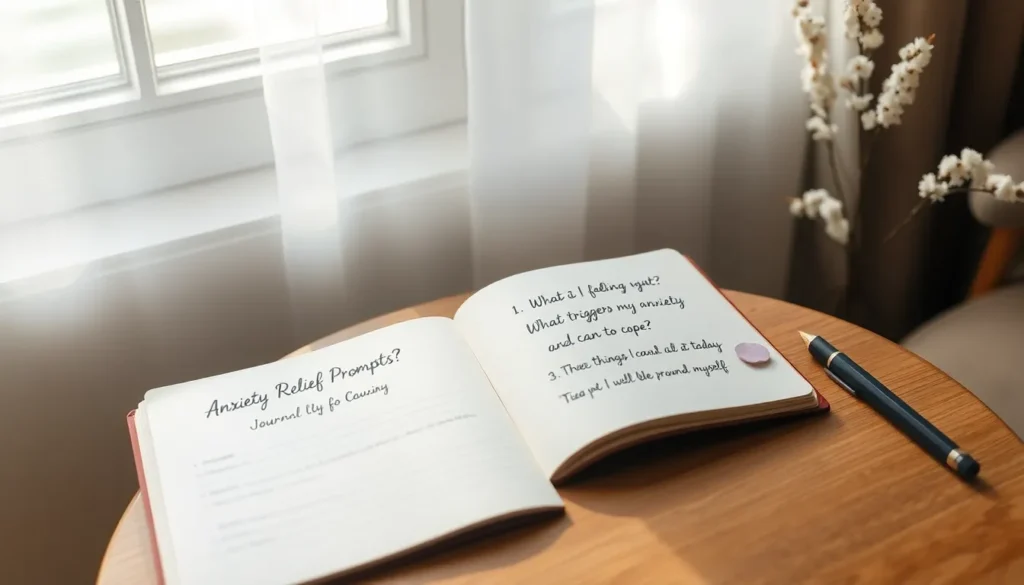 Anxiety Relief Prompts?
Journal lly fo Causiny
1. What a I fading ugut?
What triggers my anxiety
and can to cope?
3. Thee things I cand all it today
Tiea pel I will lile pround myself